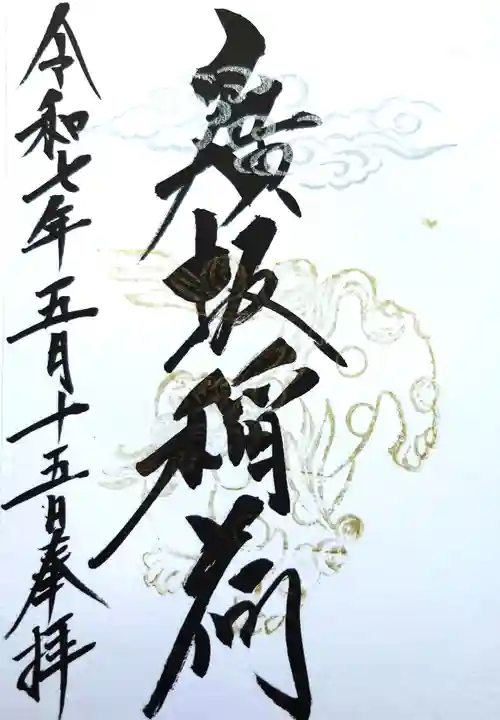 廣坂稲荷
令和七年五月十五日奉拝